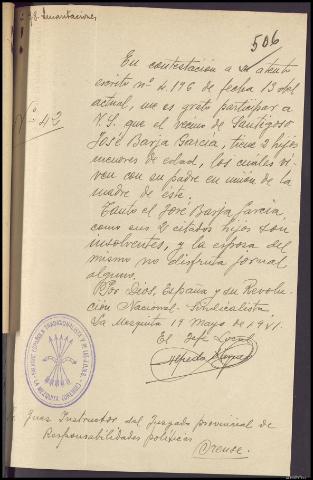 506
Nº 42
En contestación a su atento
escrito nº 4.196 de fecha 13 del
actual, me es grato participar a
V.S. que el vecino de Santigoso
José Barja García, tiene 2 hijos
menores de edad, los cuales vi-
ven con su padre en unión de la
madre de éste.
Tanto el José Barja García,
como sus 2 citados hijos son
insolventes, y la esposa del
mismo no disfruta jornal
alguno.
Por Dios, España y su Revolu-
ción Nacional-Sindicalista
La Mezquita 19 Mayo de 1941.
El Jefe Local
Alfredo
FALANGE ESPAÑOLA TRADICIONALISTA Y DE LAS J.O.N.S.
LA MEZQUITA (ORENSE)
Juez Instructor del Juzgado provincial de
Responsabilidades políticas
Orense.